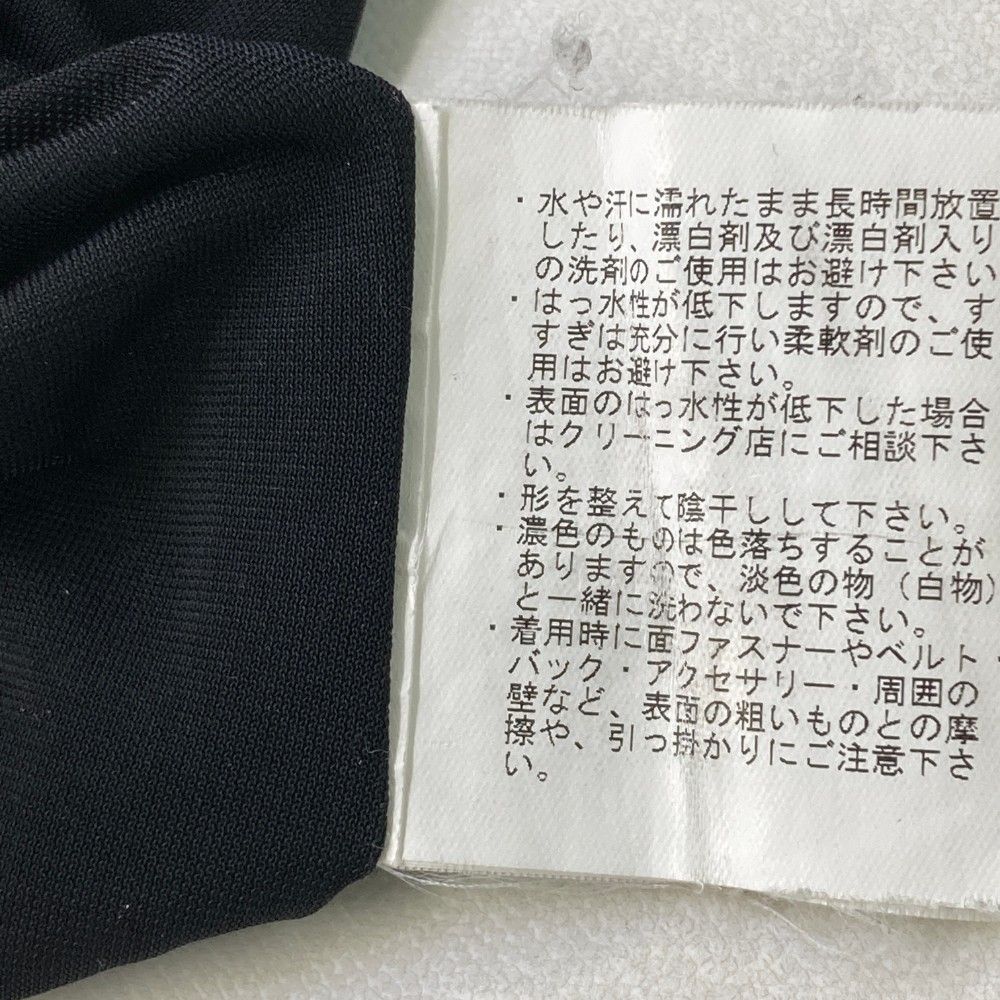 ・水や汗に濡れたまま長時間放置
したり、漂白剤及び漂白剤入り
の洗剤のご使用はお避け下さい
・はっ水性が低下しますので、す
すぎは充分に行い柔軟剤のご使
用はお避け下さい。
・表面のはっ水性が低下した場合
はクリーニング店にご相談下さ
い。
・形を整えて陰干しして下さい。
・濃色のものは色落ちすることが
ありますので、淡色の物(白物)
と一緒に洗わないで下さい。
・着用時に面ファスナーやベルト・
バック・アクセサリー・周囲の
壁など、表面の粗いものとの摩
擦や、引っ掛かりにご注意下さ
い。